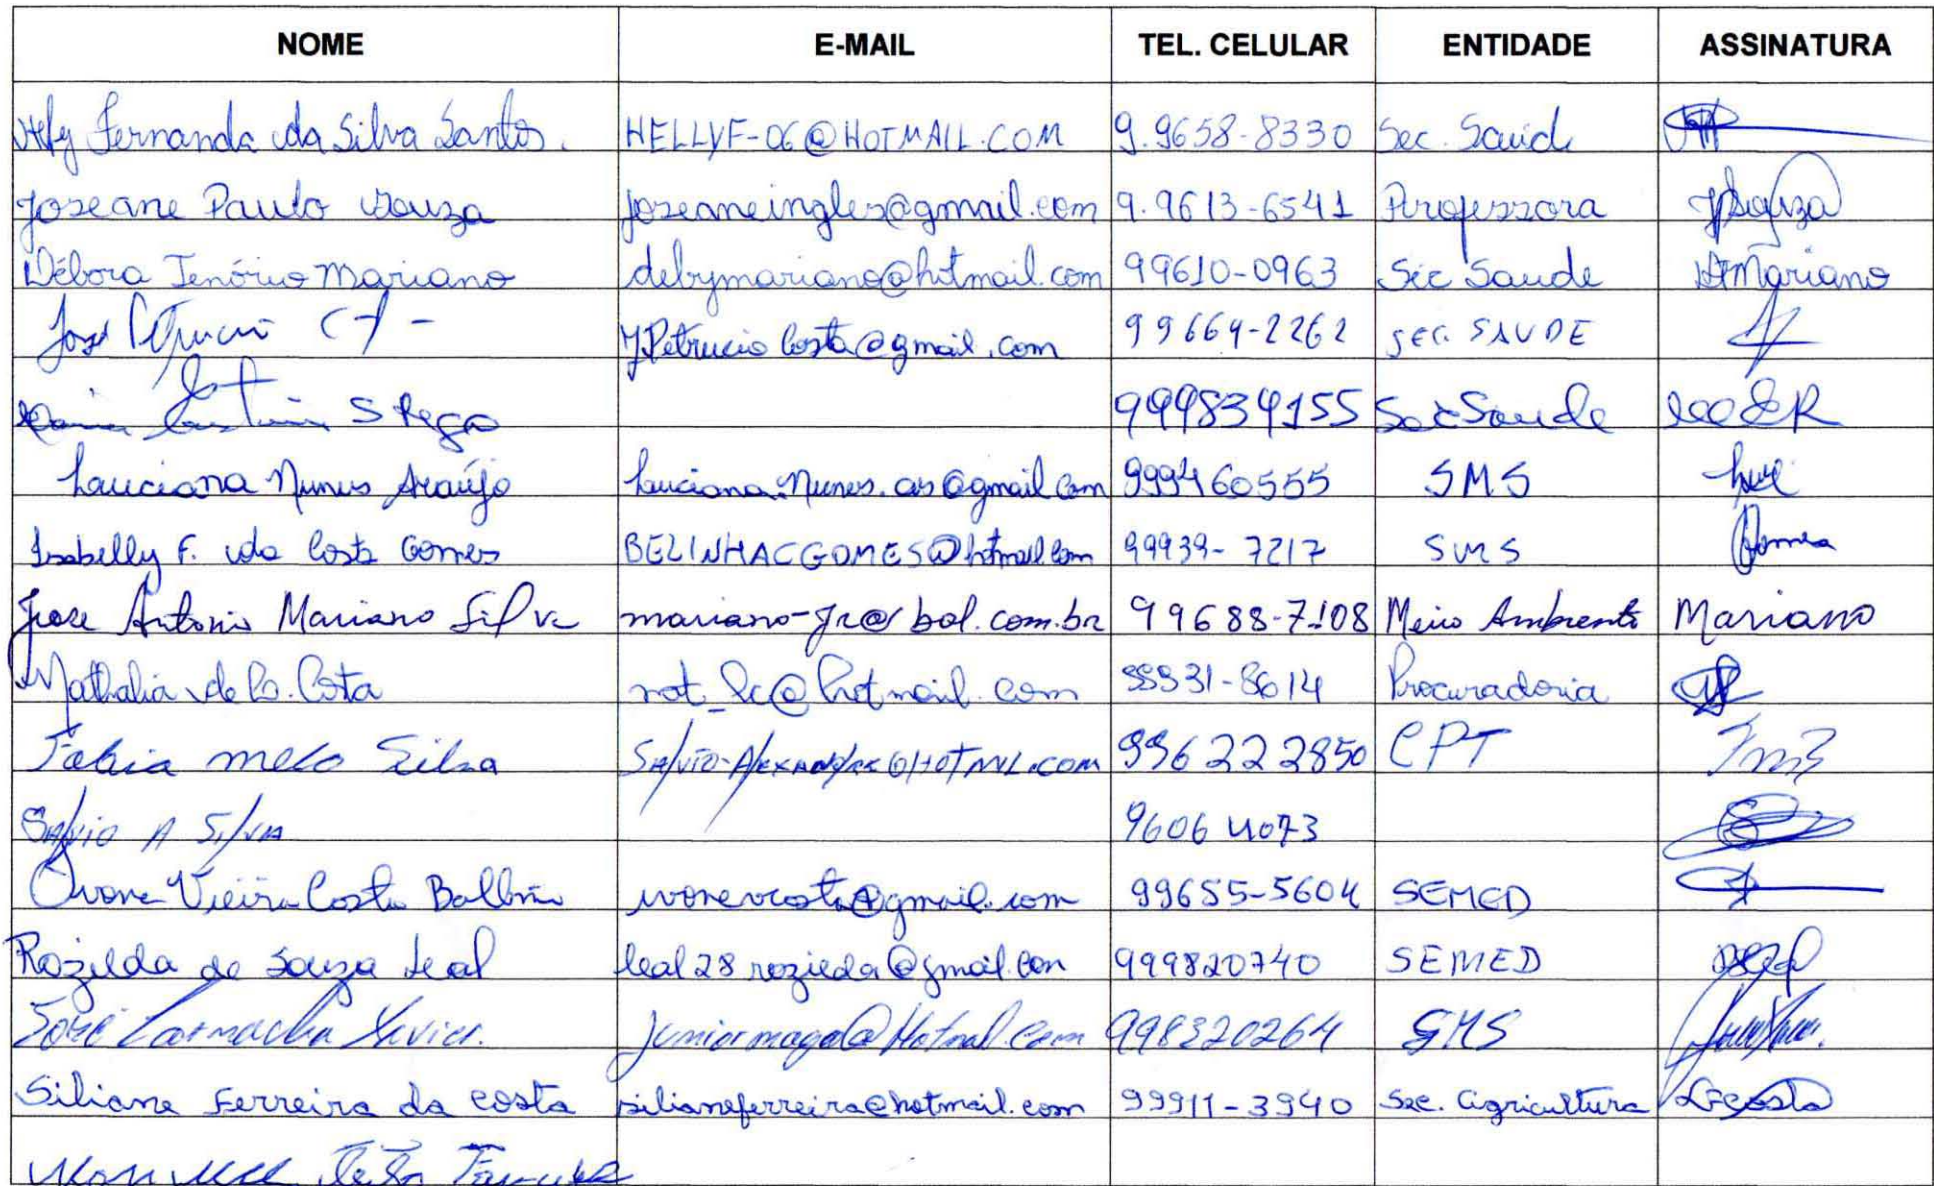 NOME E-MAIL TEL. CELULAR ENTIDADE ASSINATURA
Fernanda da Silva Santos. HELLYF-06@HOTMAIL.COM 9.9658-8330 Sec. Saúd
Joseane Paulo Souza joseaneingles@gmail.com 9.9613-6541 Professora JPSouza
Débora Tenório Mariano debymariano@hotmail.com 99610-0963 Sec Saude DTMariano
José JPetrucio Costa@gmail.com 99664-2262 SEC. SAUDE
S Rego 999834155 Sec Saude
Luciana Nunes Araújo luciana.nunes.as@gmail.com 999460555 SMS
Isabelly F. da Costa Gomes BELINHACGOMES@hotmail.com 99939-7217 SMS Gomes
Jose Antonio Mariano Silva mariano-jr@bol.com.br 99688-7108 Meio Ambiente Mariano
Nathalia de Costa nat_lc@hotmail.com 99931-8614 Procuradoria
Fabia melo Silva 996222850 CPT FmS
SAlvio A SilvA 96064073
Ivone Vieira Costa Balbino ivonevcosta@gmail.com 99655-5604 SEMED
Rozilda de Souza Leal leal28rozieda@gmail.com 999820740 SEMED
José Xavier. 998320264 SMS
Siliane Ferreira da costa silianeferreira@hotmail.com 99911-3940 Sec. Agricultura SFCosta